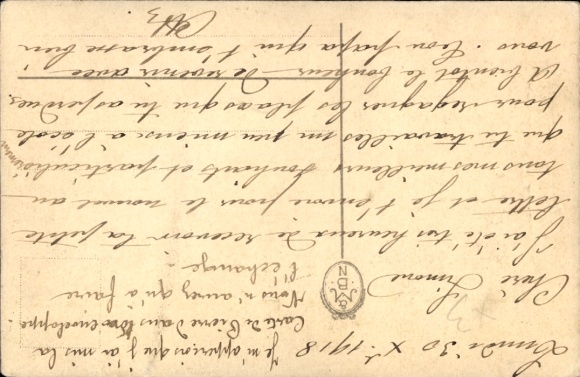 Lundi 30 Xbre 1918
Chère Simone
J'ai été très heureux de recevoir ta petite
lettre et je t'envoie pour le nouvel an
tous mes meilleurs souhaits et particulièrement
que tu travailles un peu mieux à l'école
pour regagner les places que tu as perdues.
A bientôt le bonheur de revenir avec
vous. Ton papa qui t'embrasse bien
Je m'apperçois que j'ai mis la
carte de Pierre dans ton enveloppe.
Vous n'aurez qu'à faire
l'échange.
N